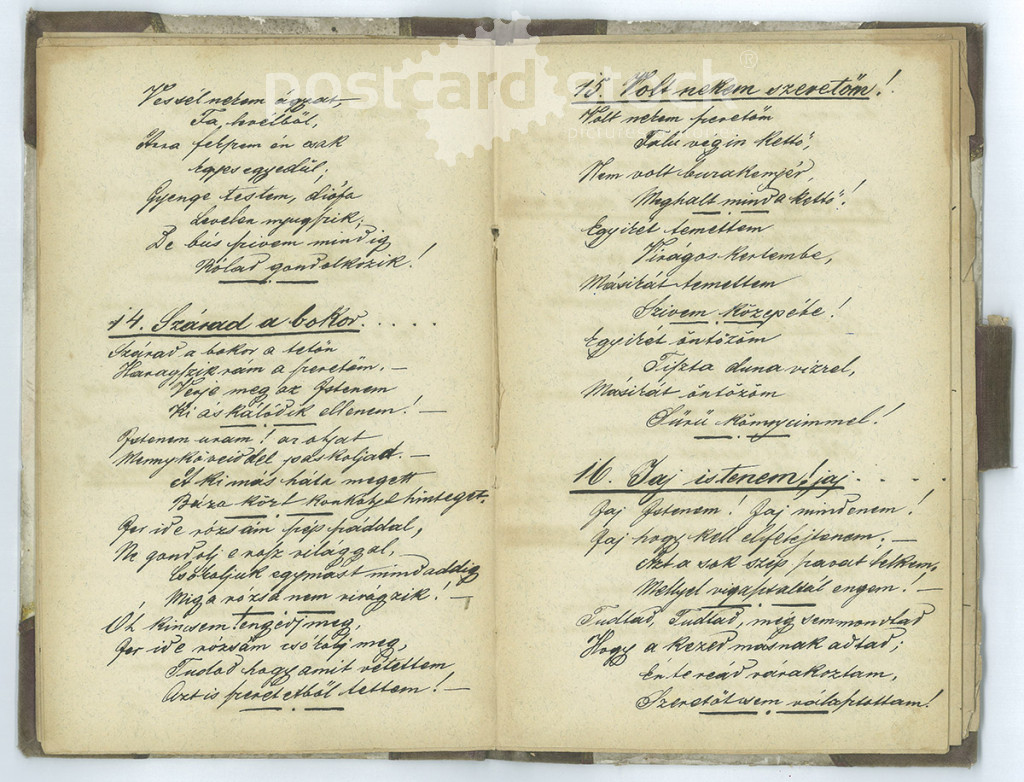 Vessél nekem ágyat,
Fa, levélből,
Arra fekszem én csak
Egyes egyedül,
Gyenge testem, diófa
Levelen nyugszik;
De bús szivem mindig
Rólad gondolkozik!
14. Szárad a bokor. . . . .
Szárad a bokor a tetőn
Haragszik rám a szeretőm. —
Verje meg az Istenem
Ki áskálódik ellenem! —
Istenem uram! azokat
Mennyköveiddel paskoljad. —
A ki más háta megett
Búza közt konkolyt hinteget.
Jer ide rózsám szép szaddal,
Ne gondolj e rosz világgal,
Csókoljuk egymást mindaddig
Mig a rózsa nem virágzik! —
Óh kincsem engedj meg,
Jer ide rózsám csókolj meg,
Tudod hogy amit vétettem
Azt is szeretetből tettem! —
15. Volt nekem szeretőm!
Volt nekem szeretőm
Falu végin kettő,
Nem volt bura kemjér,
Meghalt mind a kettő!
Egyikét temettem
Virágos kertembe,
Másikát temettem
Szivem közepébe!
Egyikét öntözöm
Tiszta duna vizzel,
Másikát öntözöm
Sürü könyeimmel!
16. Jaj istenem! jaj . . . . .
Jaj Istenem! Jaj mindenem!
Jaj hogy kell elfelejtenem, —
Azt a sok szép szavait lelkem,
Mellyel vigasztaltál engem! —
Tudtad, Tudtad, még sem mondtad
Hogy a kezed másnak adtad;
Én te reád várakoztam,
Szeretőt sem választottam!
postcard stock®